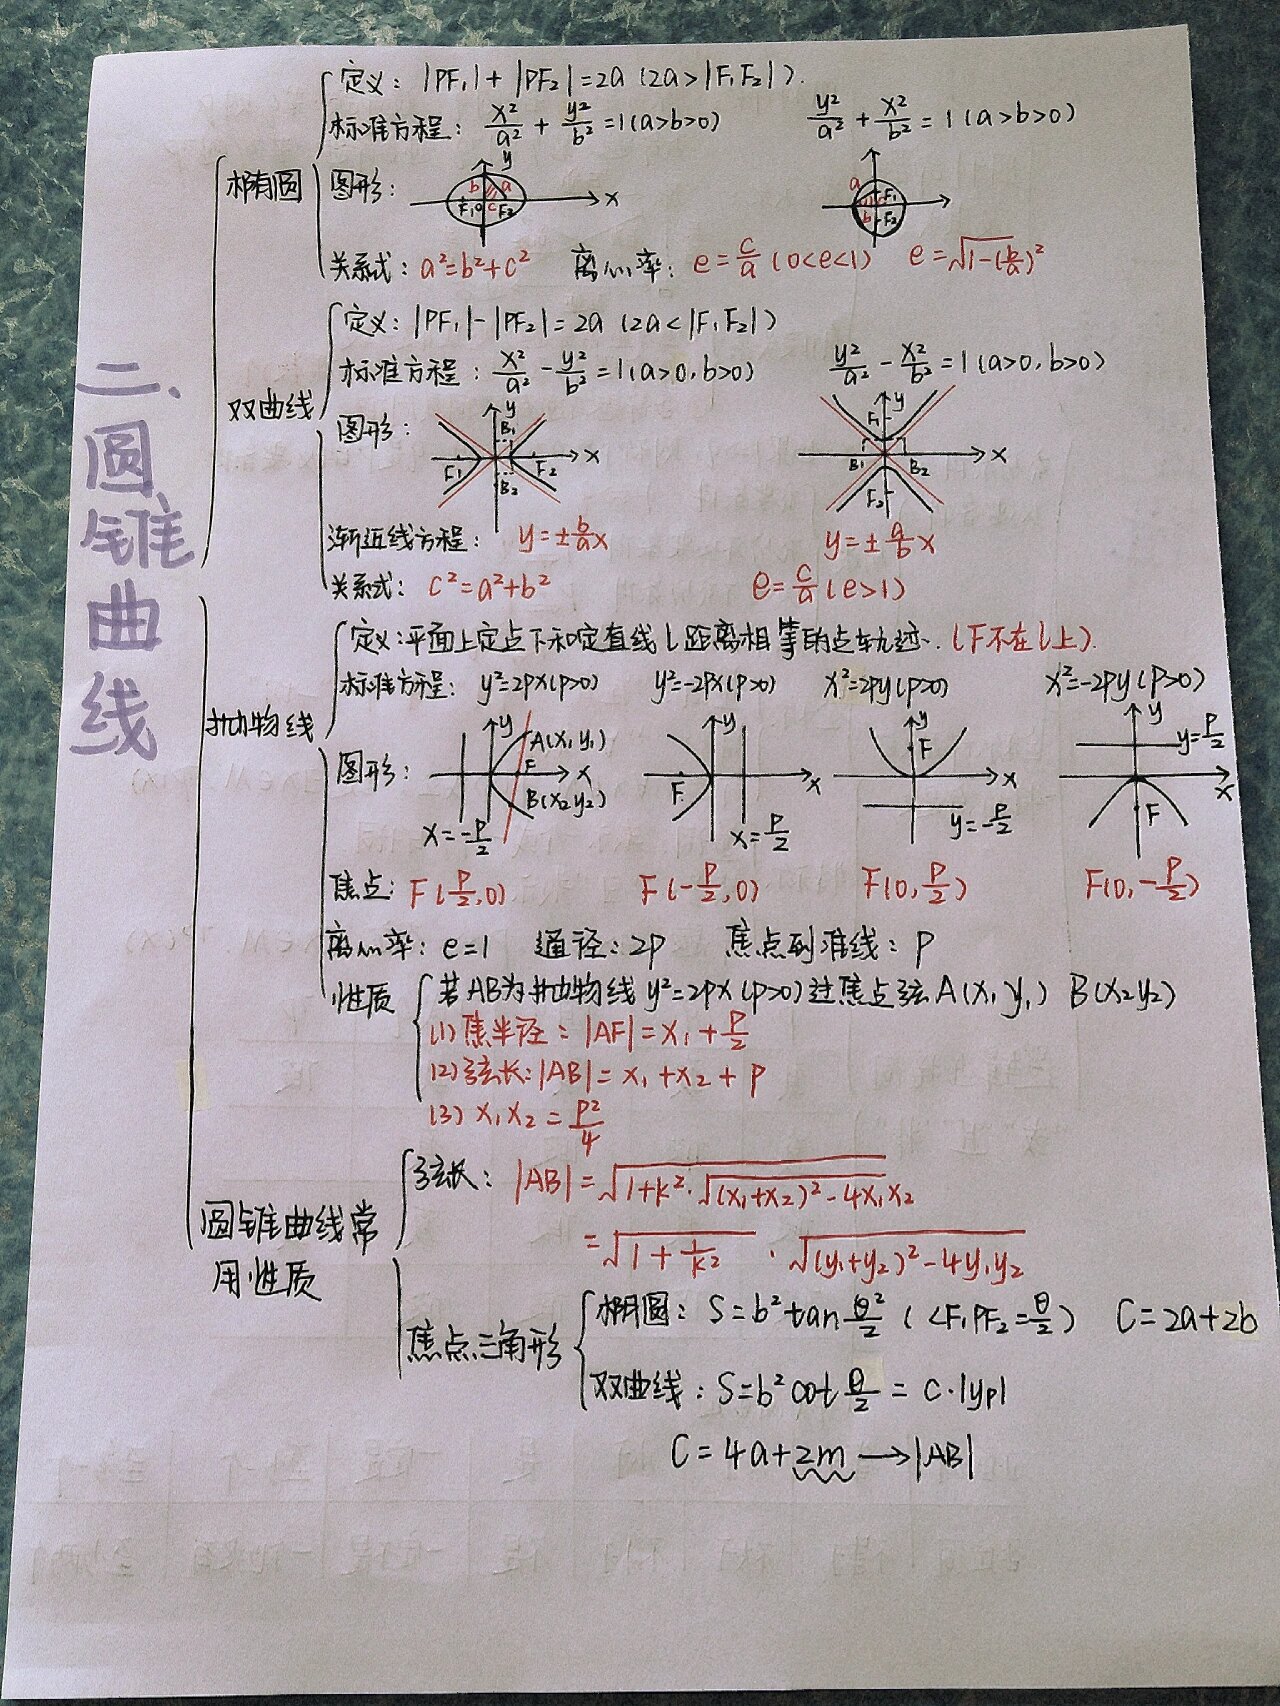 二、圆锥曲线
椭圆
定义: |PF₁|+|PF₂|=2a (2a>|F₁F₂|).
标准方程: x²/a² + y²/b² =1(a>b>0) y²/a² + x²/b² =1(a>b>0)
图形: y b a F₁ o c F₂ x a F₁ b F₂
关系式: a²=b²+c² 离心率: e=c/a (0<e<1) e=√1-(b/a)²
双曲线
定义: |PF₁|-|PF₂|=2a (2a<|F₁F₂|)
标准方程: x²/a² - y²/b² =1(a>0,b>0) y²/a² - x²/b² =1(a>0,b>0)
图形: y B₁ F₁ F₂ x B₂ y F₁ B₁ B₂ x F₂
渐近线方程: y=±b/a x y=±a/b x
关系式: c²=a²+b² e=c/a (e>1)
抛物线
定义:平面上定点F和定直线l距离相等的点轨迹.(F不在l上).
标准方程: y²=2px(p>0) y²=-2px(p>0) x²=2py(p>0) x²=-2py(p>0)
图形: y A(x₁y₁) F x B(x₂y₂) x=-p/2 F x x=p/2 y F x y=-p/2 y y=p/2 x F
焦点: F(p/2,0) F(-p/2,0) F(0,p/2) F(0,-p/2)
离心率: e=1 通径:2p 焦点到准线: p
性质
若AB为抛物线y²=2px(p>0)过焦点弦A(x₁y₁) B(x₂y₂)
(1)焦半径: |AF|=x₁+p/2
(2)弦长:|AB|=x₁+x₂+p
(3) x₁x₂=p²/4
圆锥曲线常
用性质
弦长: |AB|=√1+k²·√(x₁+x₂)²-4x₁x₂
=√1+1/k² · √(y₁+y₂)²-4y₁y₂
焦点三角形
椭圆: S=b²tan θ²/2 (<F₁PF₂=θ/2) C=2a+2b
双曲线: S=b²cot θ/2 = c·|yp|
C=4a+2m→|AB|